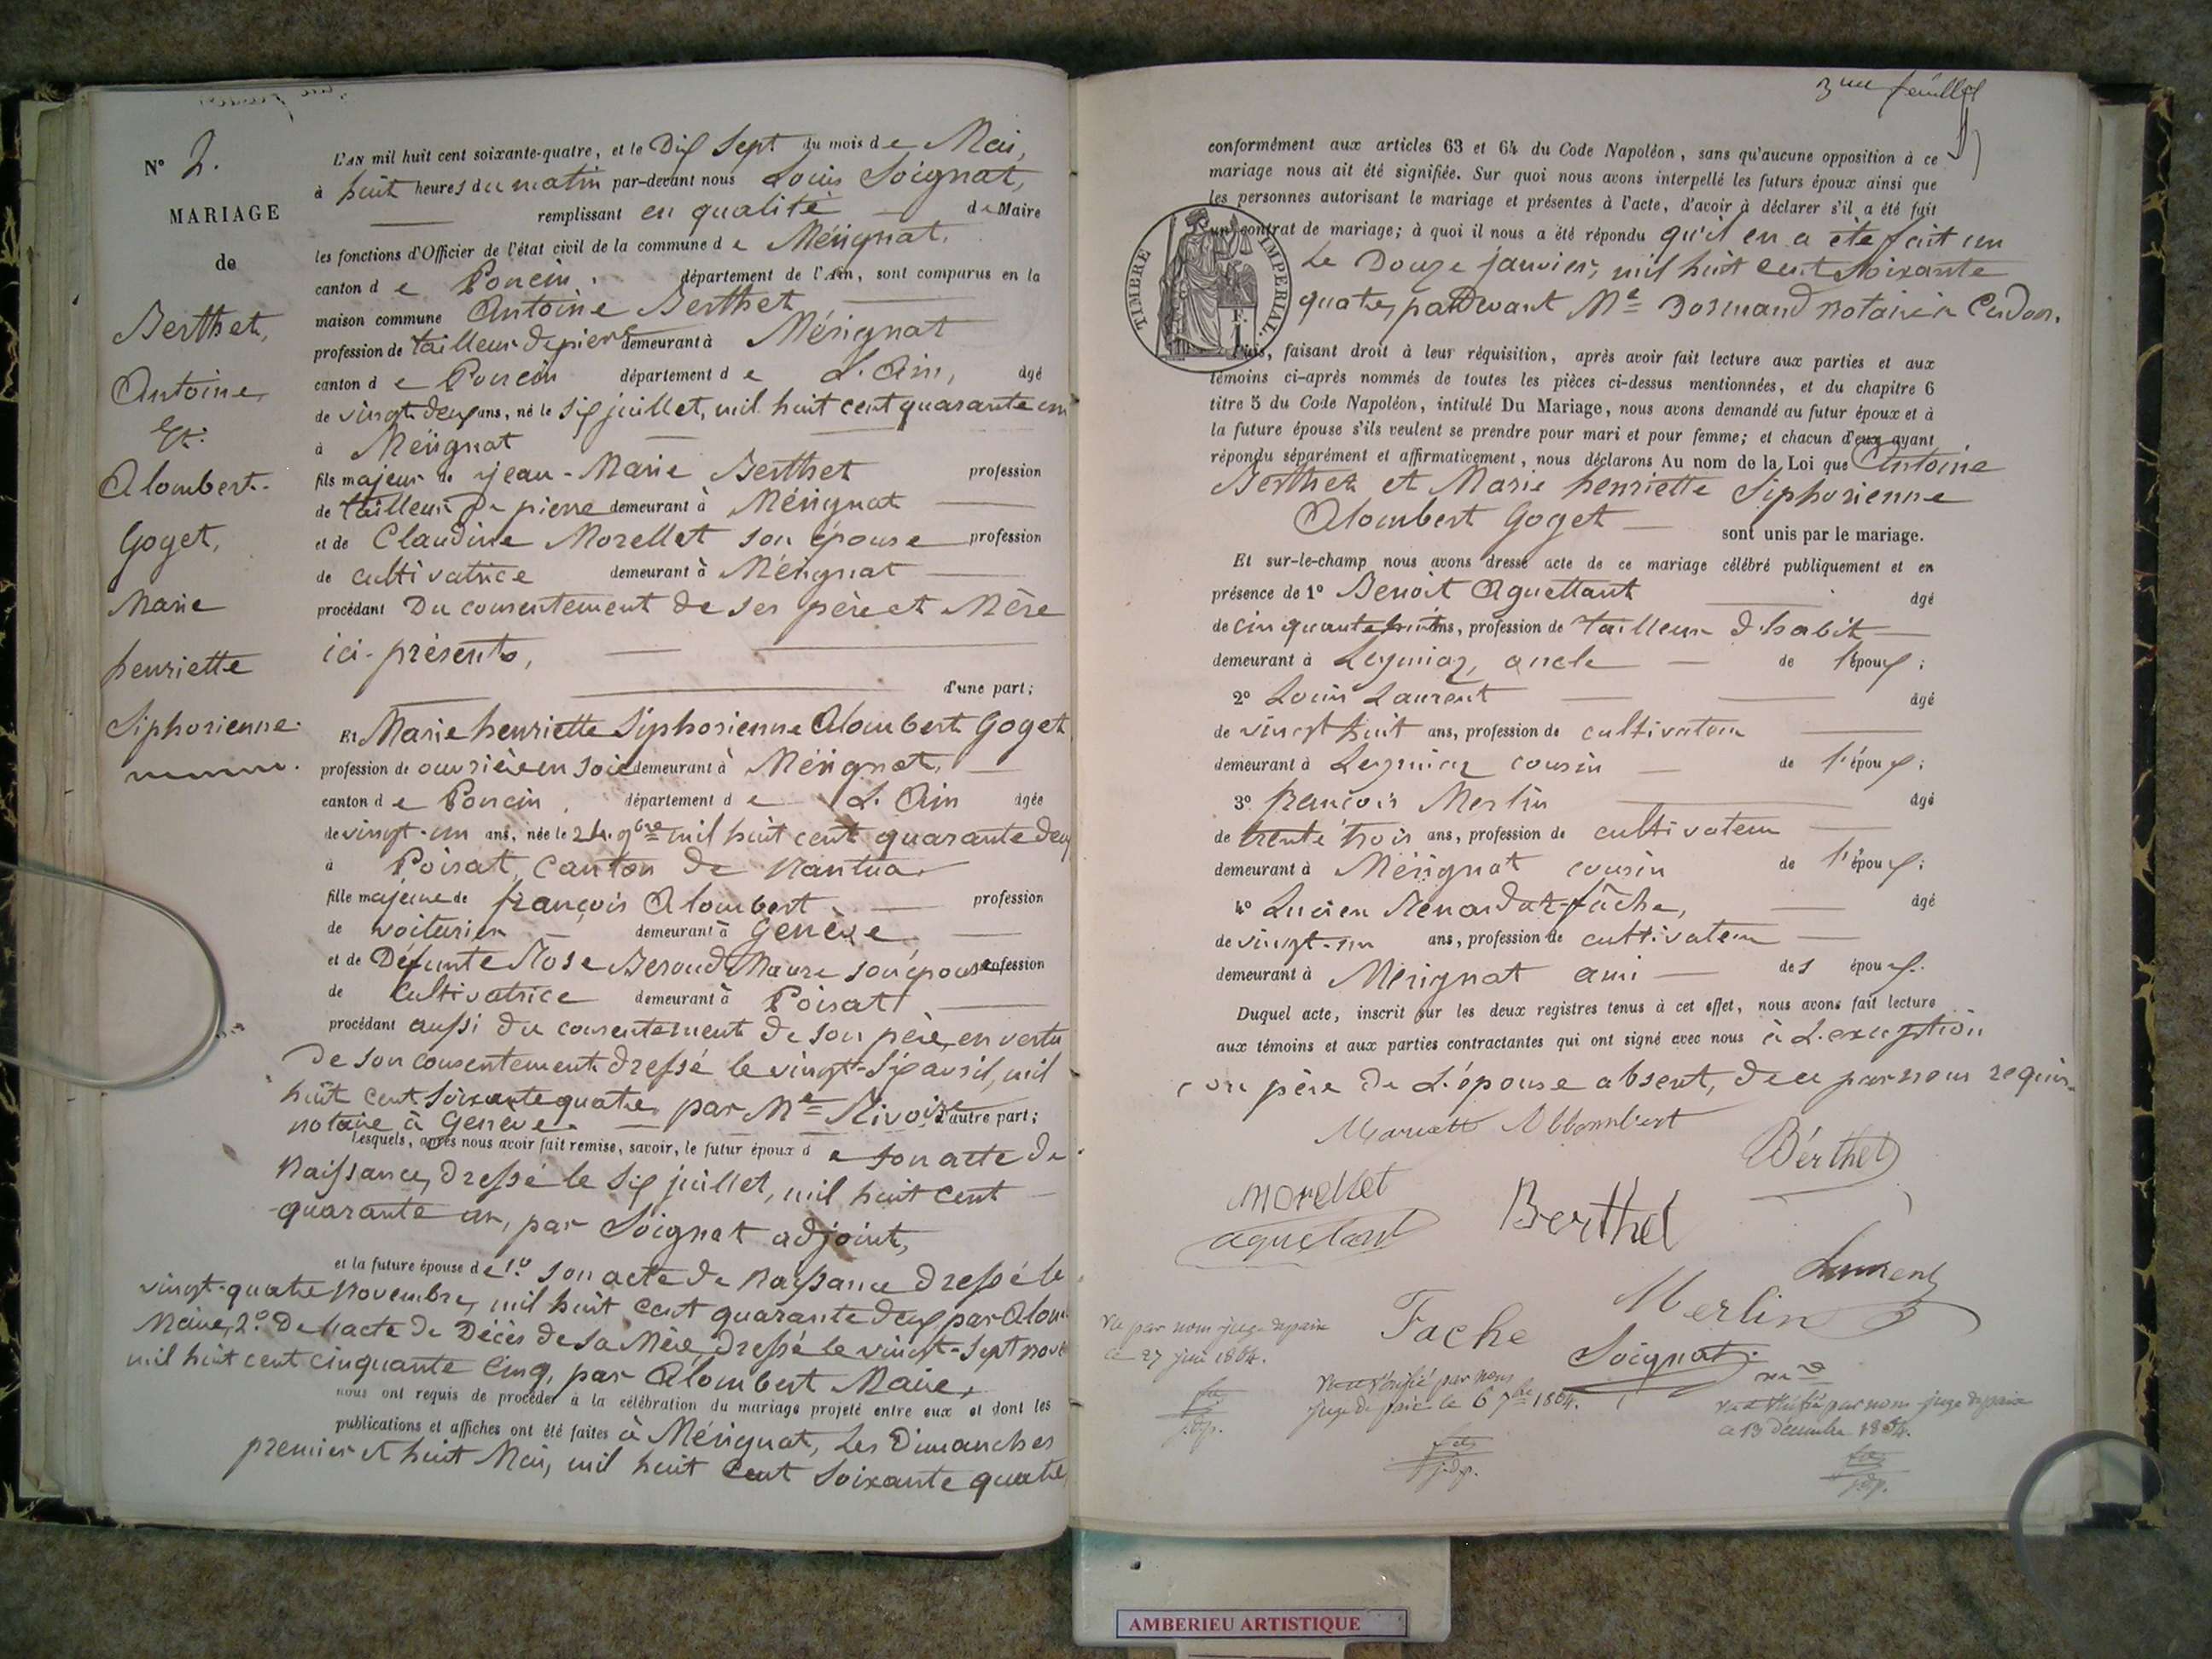 N° 2.
MARIAGE
de
Berthet,
Antoine,
Et.
Alombert-
Goget,
Marie
henriette
Siphorienne.
L'AN mil huit cent soixante-quatre, et le Dix Sept du mois de Mai,
à huit heures du matin par-devant nous Louis Soignat,
remplissant en qualité de Maire
les fonctions d'Officier de l'état civil de la commune de Mérignat.
canton de Poncin. département de l'Ain, sont comparus en la
maison commune Antoine Berthet
profession de tailleur de pierre demeurant à Mérignat
canton de Poncin département de L'Ain, âgé
de vingt deux ans, né le six juillet, mil huit cent quarante un
à Mérignat
fils majeur de jean-Marie Berthet profession
de tailleur de pierre demeurant à Mérignat
et de Claudine Morellet son épouse profession
de cultivatrice demeurant à Mérignat
procédant Du consentement de ses père et Mère
ici-présents,
d'une part;
Et Marie henriette Siphorienne Alombert Goget
profession de ouvrière en soie demeurant à Mérignat,
canton de Poncin, département de L'Ain âgée
de vingt-un ans, née le 24 9bre mil huit cent quarante deux
à Poisat, Canton de Nantua
fille majeure de françois Alombert profession
de voiturier demeurant à Genève
et de Défunte Rose Beroud Maure son épouse profession
de Cultivatrice demeurant à Poisat
procédant aussi du consentement de son père, en vertu
de son consentement dressé le vingt-six avril, mil
huit cent soixante quatre par Me Rivoire d'autre part;
notaire à Genève.
Lesquels, après nous avoir fait remise, savoir, le futur époux de son acte de
Naissance, dressé le six juillet, mil huit cent
quarante un, par Soignat adjoint,
et la future épouse de 1.° son acte de Naissance dressé le
vingt-quatre Novembre, mil huit cent quarante deux par Alom
Maire, 2.° De l'acte de Décès de sa Mère, dressé le vingt-sept nove
mil huit cent cinquante cinq, par Alombert Maire,
nous ont requis de procéder à la célébration du mariage projeté entre eux et dont les
publications et affiches ont été faites à Mérignat, les Dimanches
premier et huit Mai, mil huit Cent Soixante quatre
3me feuillet
conformément aux articles 63 et 64 du Code Napoléon, sans qu'aucune opposition à ce
mariage nous ait été signifiée. Sur quoi nous avons interpellé les futurs époux ainsi que
les personnes autorisant le mariage et présentes à l'acte, d'avoir à déclarer s'il a été fait
un contrat de mariage; à quoi il nous a été répondu qu'il en a été fait un
Le Douze janvier, mil huit cent Soixante
quatre, par Devant Me Dormand notaire à Cerdon.
TIMBRE IMPERIAL.
1 F.
Puis, faisant droit à leur réquisition, après avoir fait lecture aux parties et aux
témoins ci-après nommés de toutes les pièces ci-dessus mentionnées, et du chapitre 6
titre 5 du Code Napoléon, intitulé Du Mariage, nous avons demandé au futur époux et à
la future épouse s'ils veulent se prendre pour mari et pour femme; et chacun d'eux ayant
répondu séparément et affirmativement, nous déclarons Au nom de la Loi que Antoine
Berthet et Marie henriette Siphorienne
Alombert Goget sont unis par le mariage.
Et sur-le-champ nous avons dressé acte de ce mariage célébré publiquement et en
présence de 1° Benoit Aguettant âgé
de cinquante huit ans, profession de tailleur d'habit
demeurant à Leymiaz, oncle de l'époux;
2° Louis Laurent âgé
de vingt huit ans, profession de cultivateur
demeurant à Leymiaz cousin de l'époux;
3° françois Merlin âgé
de trente trois ans, profession de cultivateur
demeurant à Mérignat cousin de l'époux;
4° Lucien Renardat-fâche, âgé
de vingt-un ans, profession de cultivateur
demeurant à Mérignat ami des époux.
Duquel acte, inscrit sur les deux registres tenus à cet effet, nous avons fait lecture
aux témoins et aux parties contractantes qui ont signé avec nous à L'exception
du père de L'épouse absent, de ce par nous requis.
Mariette Allombert
Bérthet
morellet
Berthet
aguetant
Laurent
Merlin
Fache
Soignat
Vu par nous juge de paix
ce 27 juin 1864.
j.d.p.
Vu et vérifié par nous
juge de paix le 6 7bre 1864.
j.d.p.
Vu et vérifié par nous juge de paix
ce 13 décembre 1864.
j.d.p.
AMBERIEU ARTISTIQUE